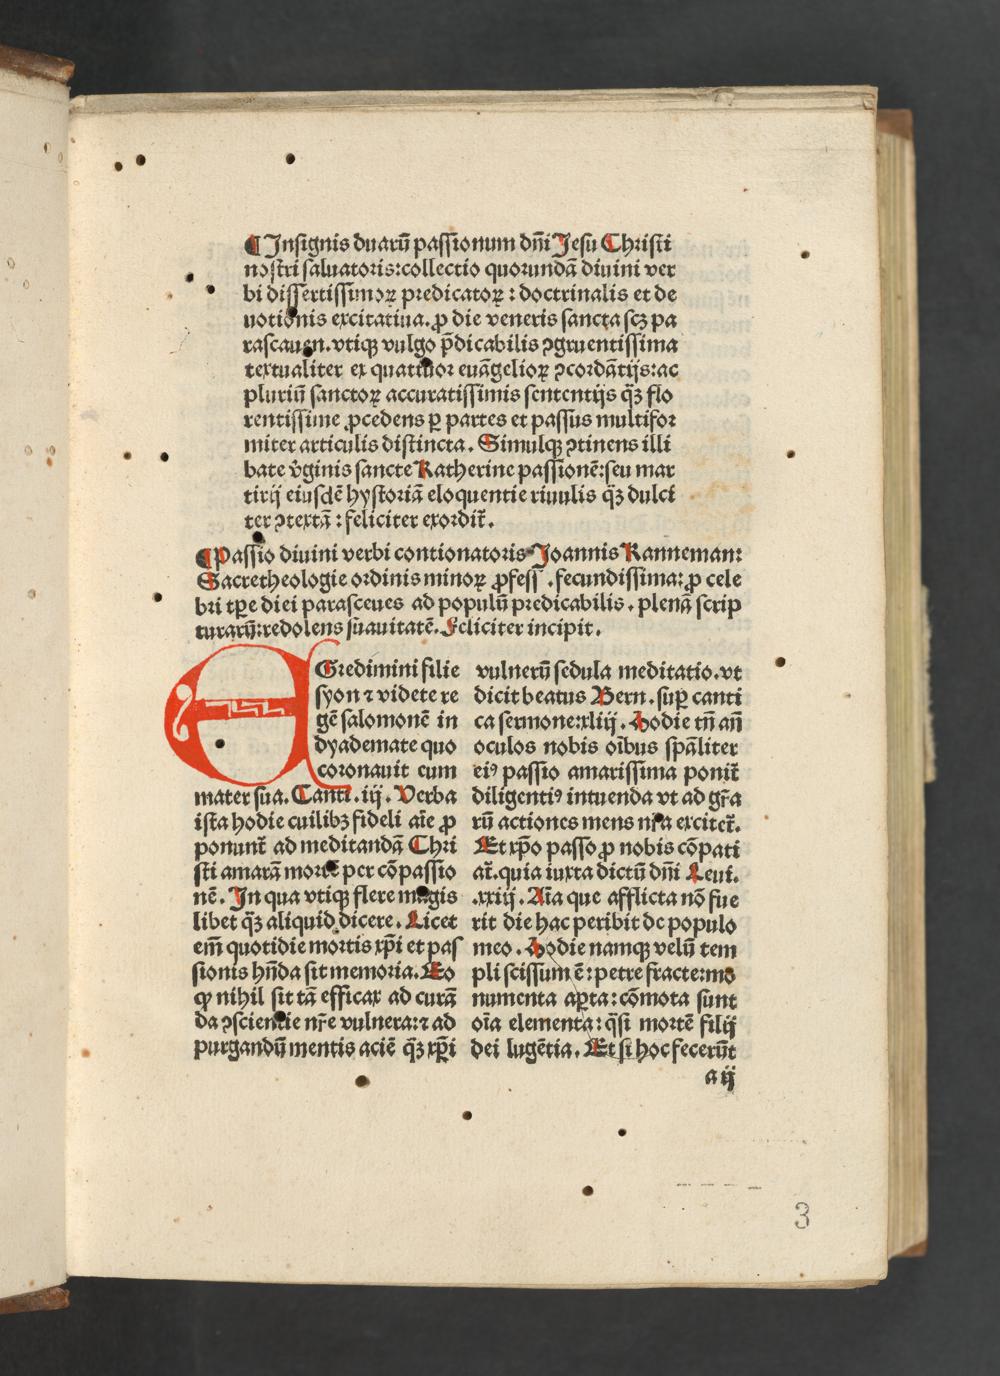 ¶ Insignis duarū passionum dn̄i Jesu Christi
nostri saluatoris:collectio quorundā diuini ver
bi dissertissimoꝝ predicatoꝝ : doctrinalis et de
uotionis excitatiua. ꝓ die veneris sancta scꝫ pa
rascauen. vtiqꝫ vulgo p̄dicabilis ꝯgruentissima
textualiter ex quattuor euāgelioꝝ ꝯcordātijs:ac
pluriū sanctoꝝ accuratissimis sententijs q̄ꝫ flo
rentissime ꝓcedens ꝑ partes et passus multifor
miter articulis distincta. Simulqꝫ ꝯtinens illi
bate v̄ginis sancte Katherine passionē:seu mar
tirij eiusdē hystoriā eloquentie riuulis q̄ꝫ dulci
ter ꝯtextā : feliciter exordit̄.
¶Passio diuini verbi contionatoris Joannis Kanneman:
Sacretheologie ordinis minoꝝ ꝓfess̄ . fecundissima: ꝓ cele
bri tꝑe diei parasceues ad populū predicabilis. plenā scrip
turarū:redolens suauitatē. Feliciter incipit.
EGredimini filie
syon ⁊ videte re
gē salomonē in
dyademate quo
coronauit eum
mater sua. Canti .iij. Verba
ista hodie cuilibꝫ fideli aīe ꝓ
ponunt̄ ad meditandā Chri
sti amarā mortē per cōpassio
nē. In qua vtiqꝫ flere magis
libet q̄ꝫ aliquid dicere. Licet
em̄ quotidie mortis xp̄i et pas
sionis hn̄da sit memoria. Eo
ꝙ nihil sit tā efficax ad curā
da ꝯscientie nr̄e vulnera:⁊ ad
purgandū mentis aciē q̄ꝫ xp̄i
vulnerū sedula meditatio. vt
dicit beatus Bern. suꝑ canti
ca sermone:xliij. Hodie tn̄ an̄
oculos nobis oībus spāliter
eiꝰ passio amarissima ponit̄
diligentiꝰ intuenda vt ad gr̄a
rū actiones mens nr̄a excitet̄.
Et xp̄o passo ꝓ nobis cōpati
at̄. quia iuxta dictū dn̄i Leui.
.xxiij. Aīa que afflicta nō fue
rit die hac peribit de populo
meo. Hodie namqꝫ velū tem
pli scissum ē: petre fracte:mo
numenta aꝑta: cōmota sunt
oīa elementa: q̄si mortē filij
dei lugētia. Et si hoc fecerūt
a ij
3